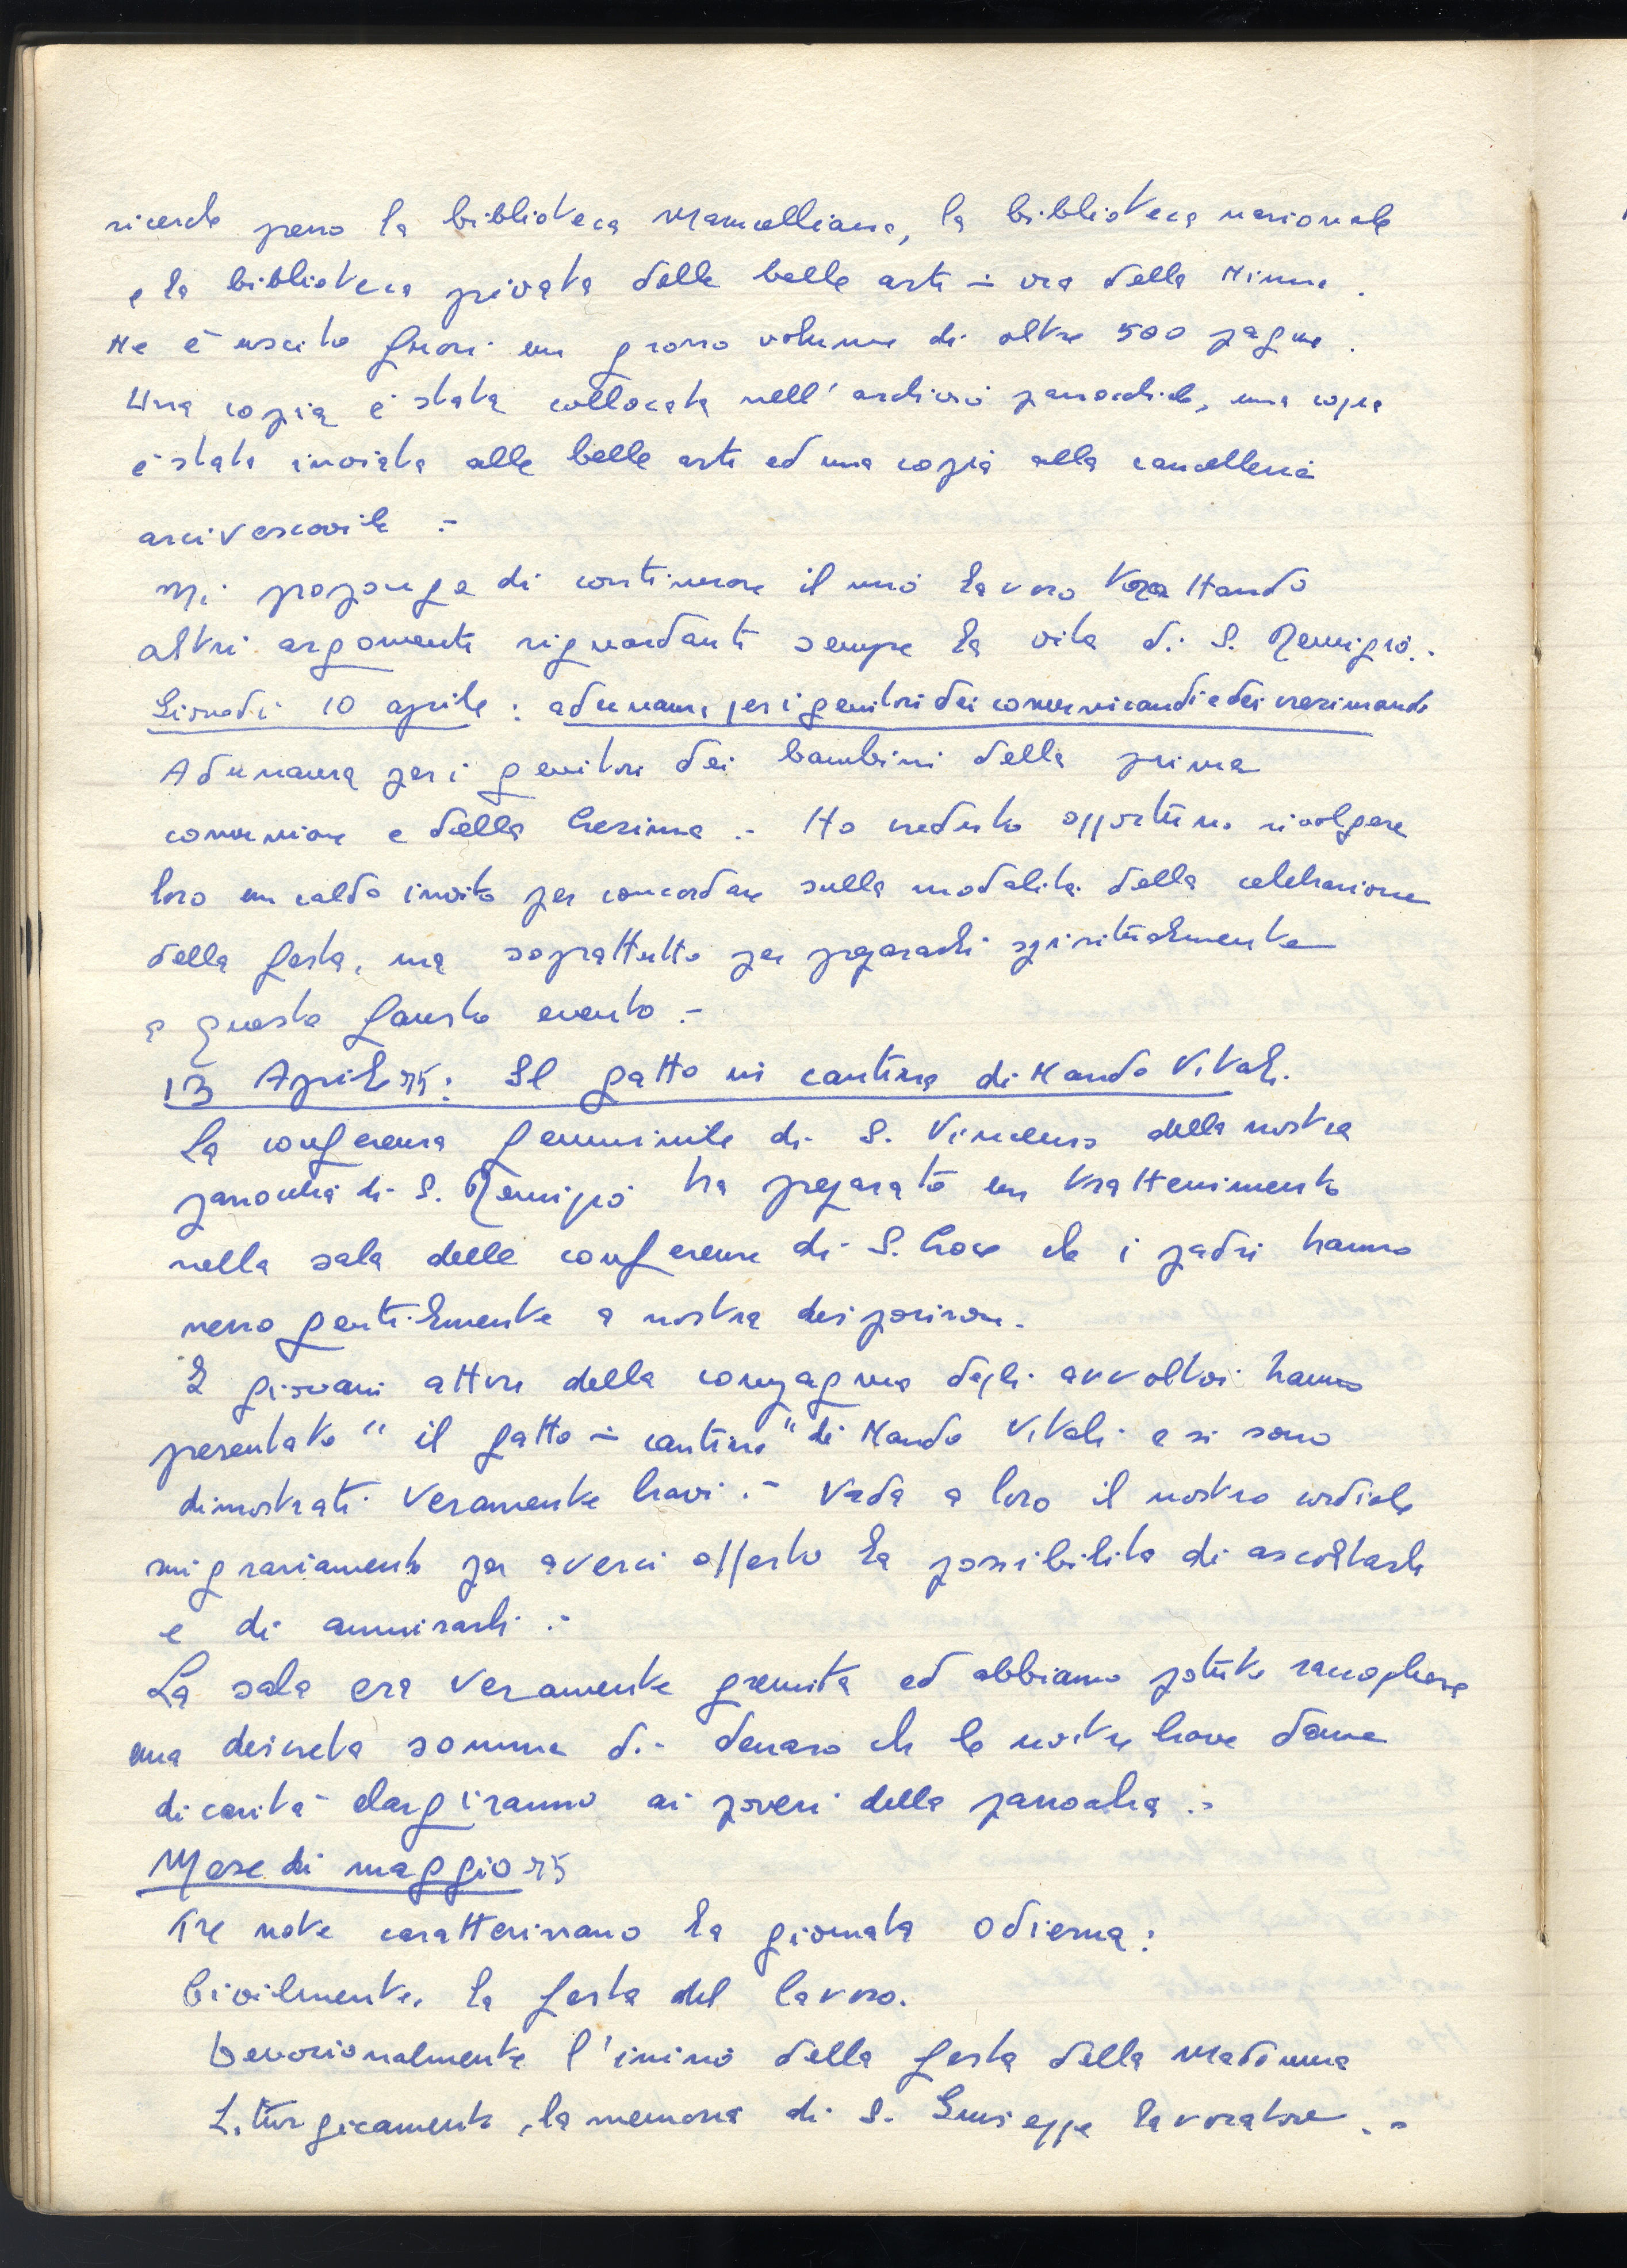 ricerche presso la biblioteca Marucelliana, la biblioteca nazionale
e la biblioteca privata delle belle arti in via della Ninna.
Ne è uscito fuori un grosso volume di oltre 500 pagine.
Una copia è stata collocata nell'archivio parrocchiale, una copia
è stata inviata alle belle arti ed una copia alla cancelleria
arcivescovile .-
Mi propongo di continuare il mio lavoro trattando
altri argomenti riguardanti sempre la vita di S. Remigio.-
Giovedì 10 aprile : adunanza per i genitori dei comunicandi e dei cresimandi
Adunanza per i genitori dei bambini della prima
comunione e della Cresima .- Ho creduto opportuno rivolgere
loro un caldo invito per concordare sulla modalità della celebrazione
della festa, ma soprattutto per prepararli spiritualmente
a questo fausto evento .-
13 Aprile 75: Il gatto in cantina di Nando Vitali.
La conferenza femminile di S. Vincenzo della nostra
parrocchia di S. Remigio ha preparato un trattenimento
nella sala delle conferenze di S. Croce che i padri hanno
messo gentilmente a nostra disposizione.
I giovani attori della compagnia degli avvoltoi hanno
presentato "il gatto in cantina" di Nando Vitali e si sono
dimostrati veramente bravi .- Vada a loro il nostro cordiale
ringraziamento per averci offerto la possibilità di ascoltarli
e di ammirarli .-
La sala era veramente gremita ed abbiamo potuto raccogliere
una discreta somma di denaro che le nostre brave dame
di carità elargiranno ai poveri della parrocchia .-
Mese di maggio 75
Tre note caratterizzano la giornata odierna:
Civilmente, la festa del lavoro.
Devozionalmente l'inizio della festa della Madonna
Liturgicamente, la memoria di S. Giuseppe lavoratore .-